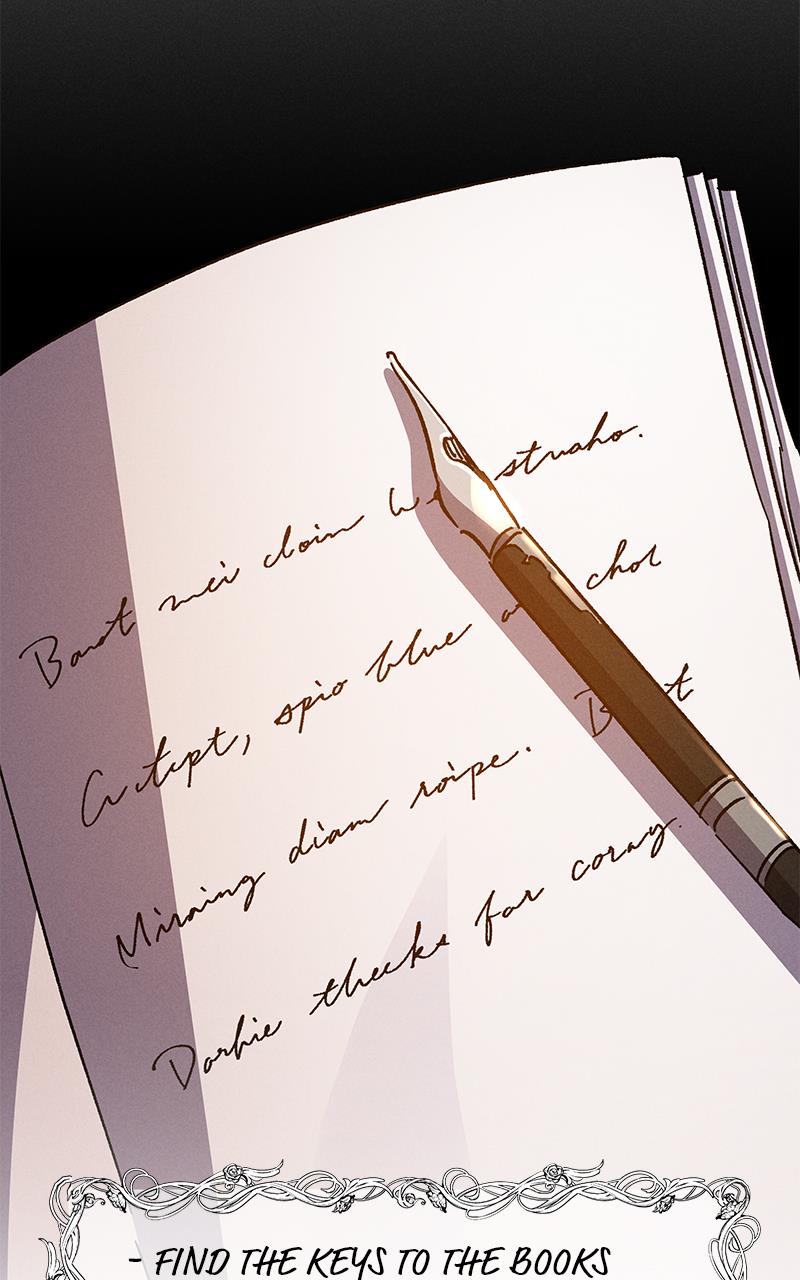 Baust mei cloin struaho.
spio blue chol
Miraing diam roipe.
Dorhie theeks far coray.
- FIND THE KEYS TO THE BOOKS